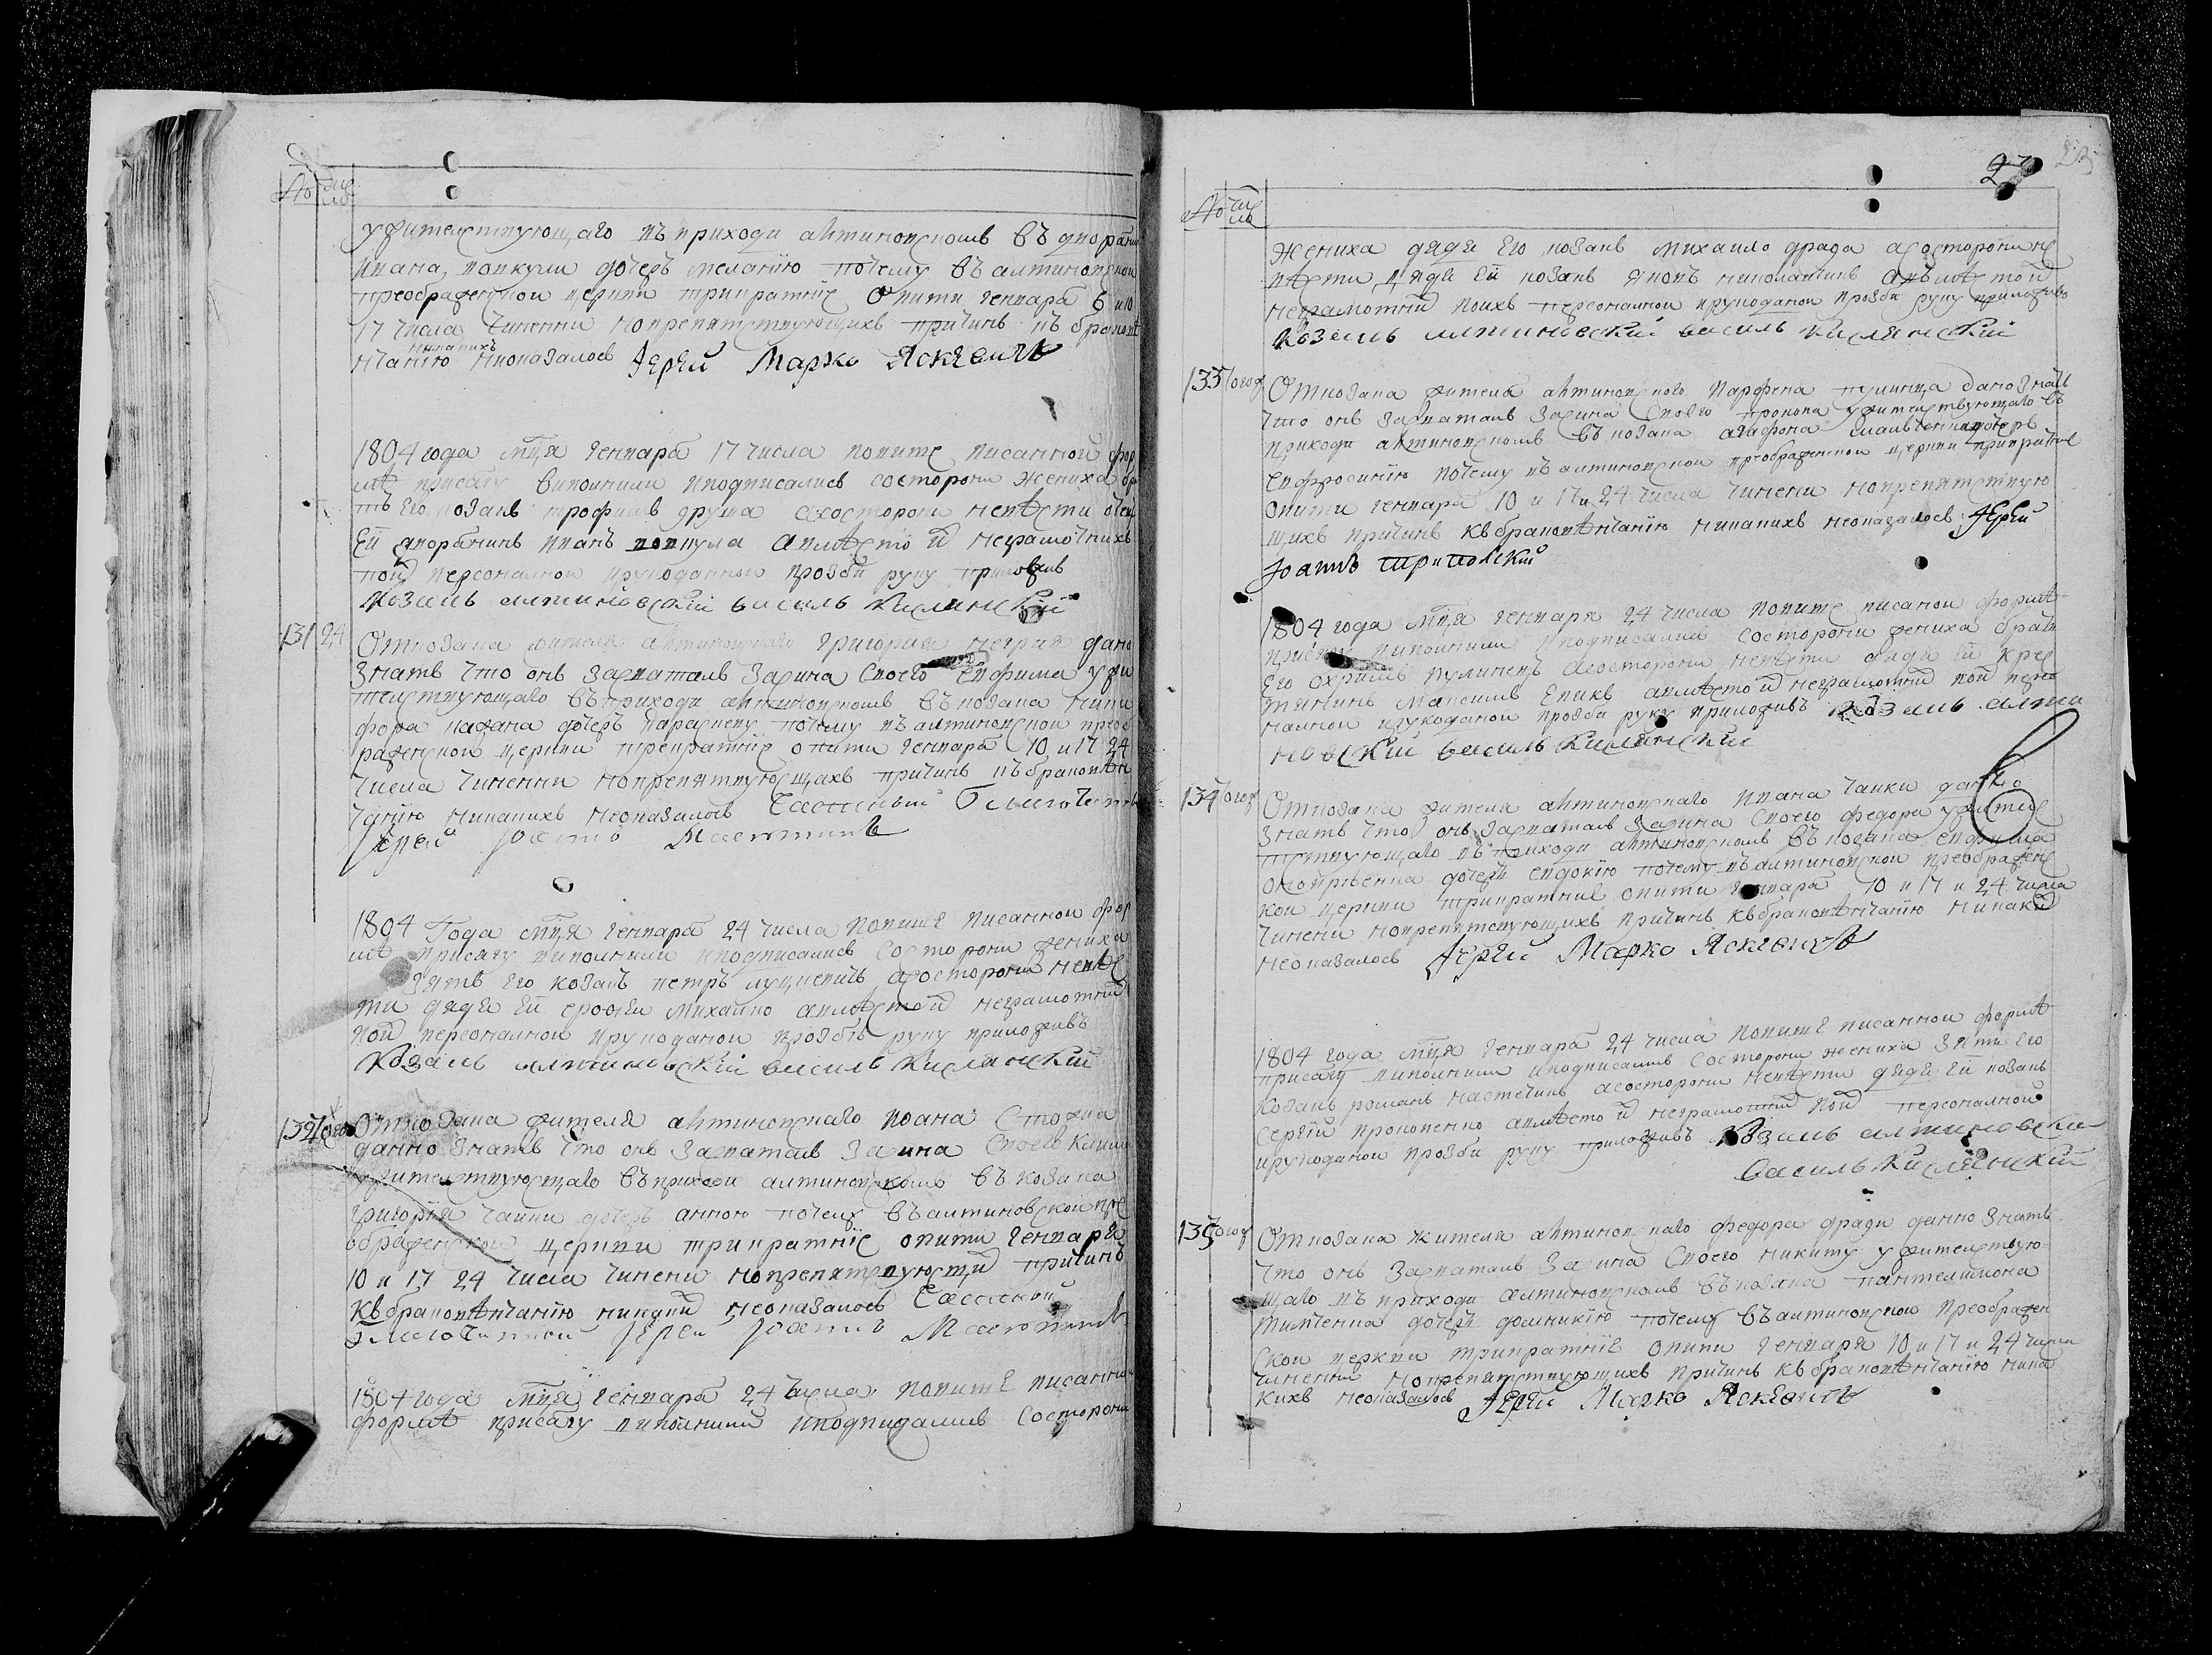 № чи сло
ужителствующаго въ приходи алтиновскомъ въ дворанина
Ивана, попкули дочеръ меланїю почему въ алтиновскои
преображенскои церкви трикратнїе опити генвара 6 и 10
17 числа чиненни но препятствующихъ причинъ къ браковѣ
никакихъ
нчанїю неоказалось Іерей Марко Яскевичъ
1804 года мця генвара 17 числа повише писанной фор
мѣ присагу виполнили иподписались состорони жениха бра
тъ его козакъ трофимъ друша асосторони невѣсти отец
ей дворанинъ иванъ попкула авмѣсто й неграмотнихъ
пой персоналной ирукоданной прозби руку приложивъ
Козакъ алтиновскій василь Кислянскій
131 24
Откозака жителя алтиновскаго григория негрия дано
знать что онъ засваталъ засина своего ефима ужи
телствующаго въ приходи алтиновскомъ въ козака ники
фора дочеръ параскеву почему въ алтиновскои преоб
раженскои церкви трикратнїе опити генвара 10 и 17 24
числа чиненни но препятствующихъ причинъ къ браковѣн
чанїю никакихъ неоказалось
Іерей Іоаннъ
1804 Года мця генвара 24 числа повише писанной фор
мѣ присагу виполнили иподписались состорони жениха
зять его козакъ петръ луценичъ асосторони невѣс
ти дядя ей михайло авмѣстой неграмотний
пой персоналной ирукоданой прозбѣ руку приложивъ
Козакъ алтиновскій василь Кислянский
132 того
Откозака жителя алтиновскаго
данно знать что онъ засваталъ засина своего
ужителствующаго въ приходи алтиновскомъ въ козака
григория чайки дочеръ анною почему въ алтиновской пре
ображенской церкви трикратнїе опити генваря
10 и 17 24 числа чинени но препятствующий причинъ
къ браковѣнчанїю никаций неоказалось
Іерей Іоаннъ
1804 года мця генвара 24 числа повише писанни
формѣ присагу виполнили иподписались состорони
27
№ чи сла
жениха дядя его козакъ михаило драда асосторони не
вѣсти дядя ей козакъ яковъ николаенко авъмѣстой
неграмотний поихъ персоналной ирукоданой прозби руку приложивъ
Козакъ алтиновский василь Кислянский
133 тогож
Откозака жителя алтиновского Парфена пулинца дано знать
что онъ засваталъ засина своего прокопа ужителствующаго въ
приходи алтиновскомъ въ козака агафона дочерь
Евфросинїю почему въ алтиновскои преображенскои церкви трикратнїе
опити генвара 10 и 17 и 24 числа чинени но препятствую
щихъ причинъ къ браковѣнчанїю никакихъ неоказалось Іерей
Іоаннъ Трипольский
1804 года мця генваря 24 числа повише писанои формѣ
присагу виполнили иподписались состорони жениха братъ
его охримъ пулинецъ асосторони невѣсти дядя ей крес
тянинъ Максимъ Епикъ авмѣсто й неграмотний пой персо
налной ирукоданой прозби руку приложивъ козакъ алти
новский василь Кислянский
134 тогож
Откозака жителя алтиновскаго Ивана чайки данно
знать что онъ засваталъ засина своего федора ужител
ствующаго въ приходи алтиновскомъ въ козака ефима
дочерь евдокїю почему въ алтиновскои преображенс
кои церкви трикратние опити генвара 10 и 17 и 24 числа
чинени но препятствующихъ причинъ къ браковѣнчанїю никакй
неоказалось Іерей Марко Яскевичъ
1804 года мця генвара 24 числа повише писанной формѣ
присагу виполнили иподписались состорони жениха зять его
козакъ романъ асосторони невѣсти дядя ей козакъ
Сергїй прокопенко авмѣсто й неграмотний пой персоналной
ирукоданой прозби руку приложивъ Козакъ алтиновски
василь Кислянский
135 тогож
Откозака жителя алтиновскаго федора дради данно знать
что онъ засваталъ засина своего никиту ужителствую
щаго въ приходи алтиновскомъ въ козака пантелимона
дочеръ домникїю почему въ алтиновскои преображен
скои церкви трикратнїе опити генваря 10 и 17 и 24 числа
чиненни но препятствующихъ причинъ къ браковѣнчанїю ника
кихъ неоказалось Іерей Марко Яскевичъ